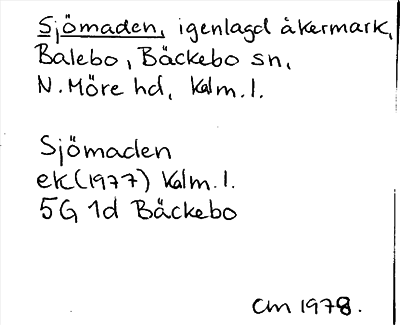 Sjömaden, igenlagd åkermark,
Balebo, Bäckebo sn,
N. Möre hd, Kalm. l.
Sjömaden
ek (1977) Kalm. l.
5G 1d Bäckebo
CM 1978.